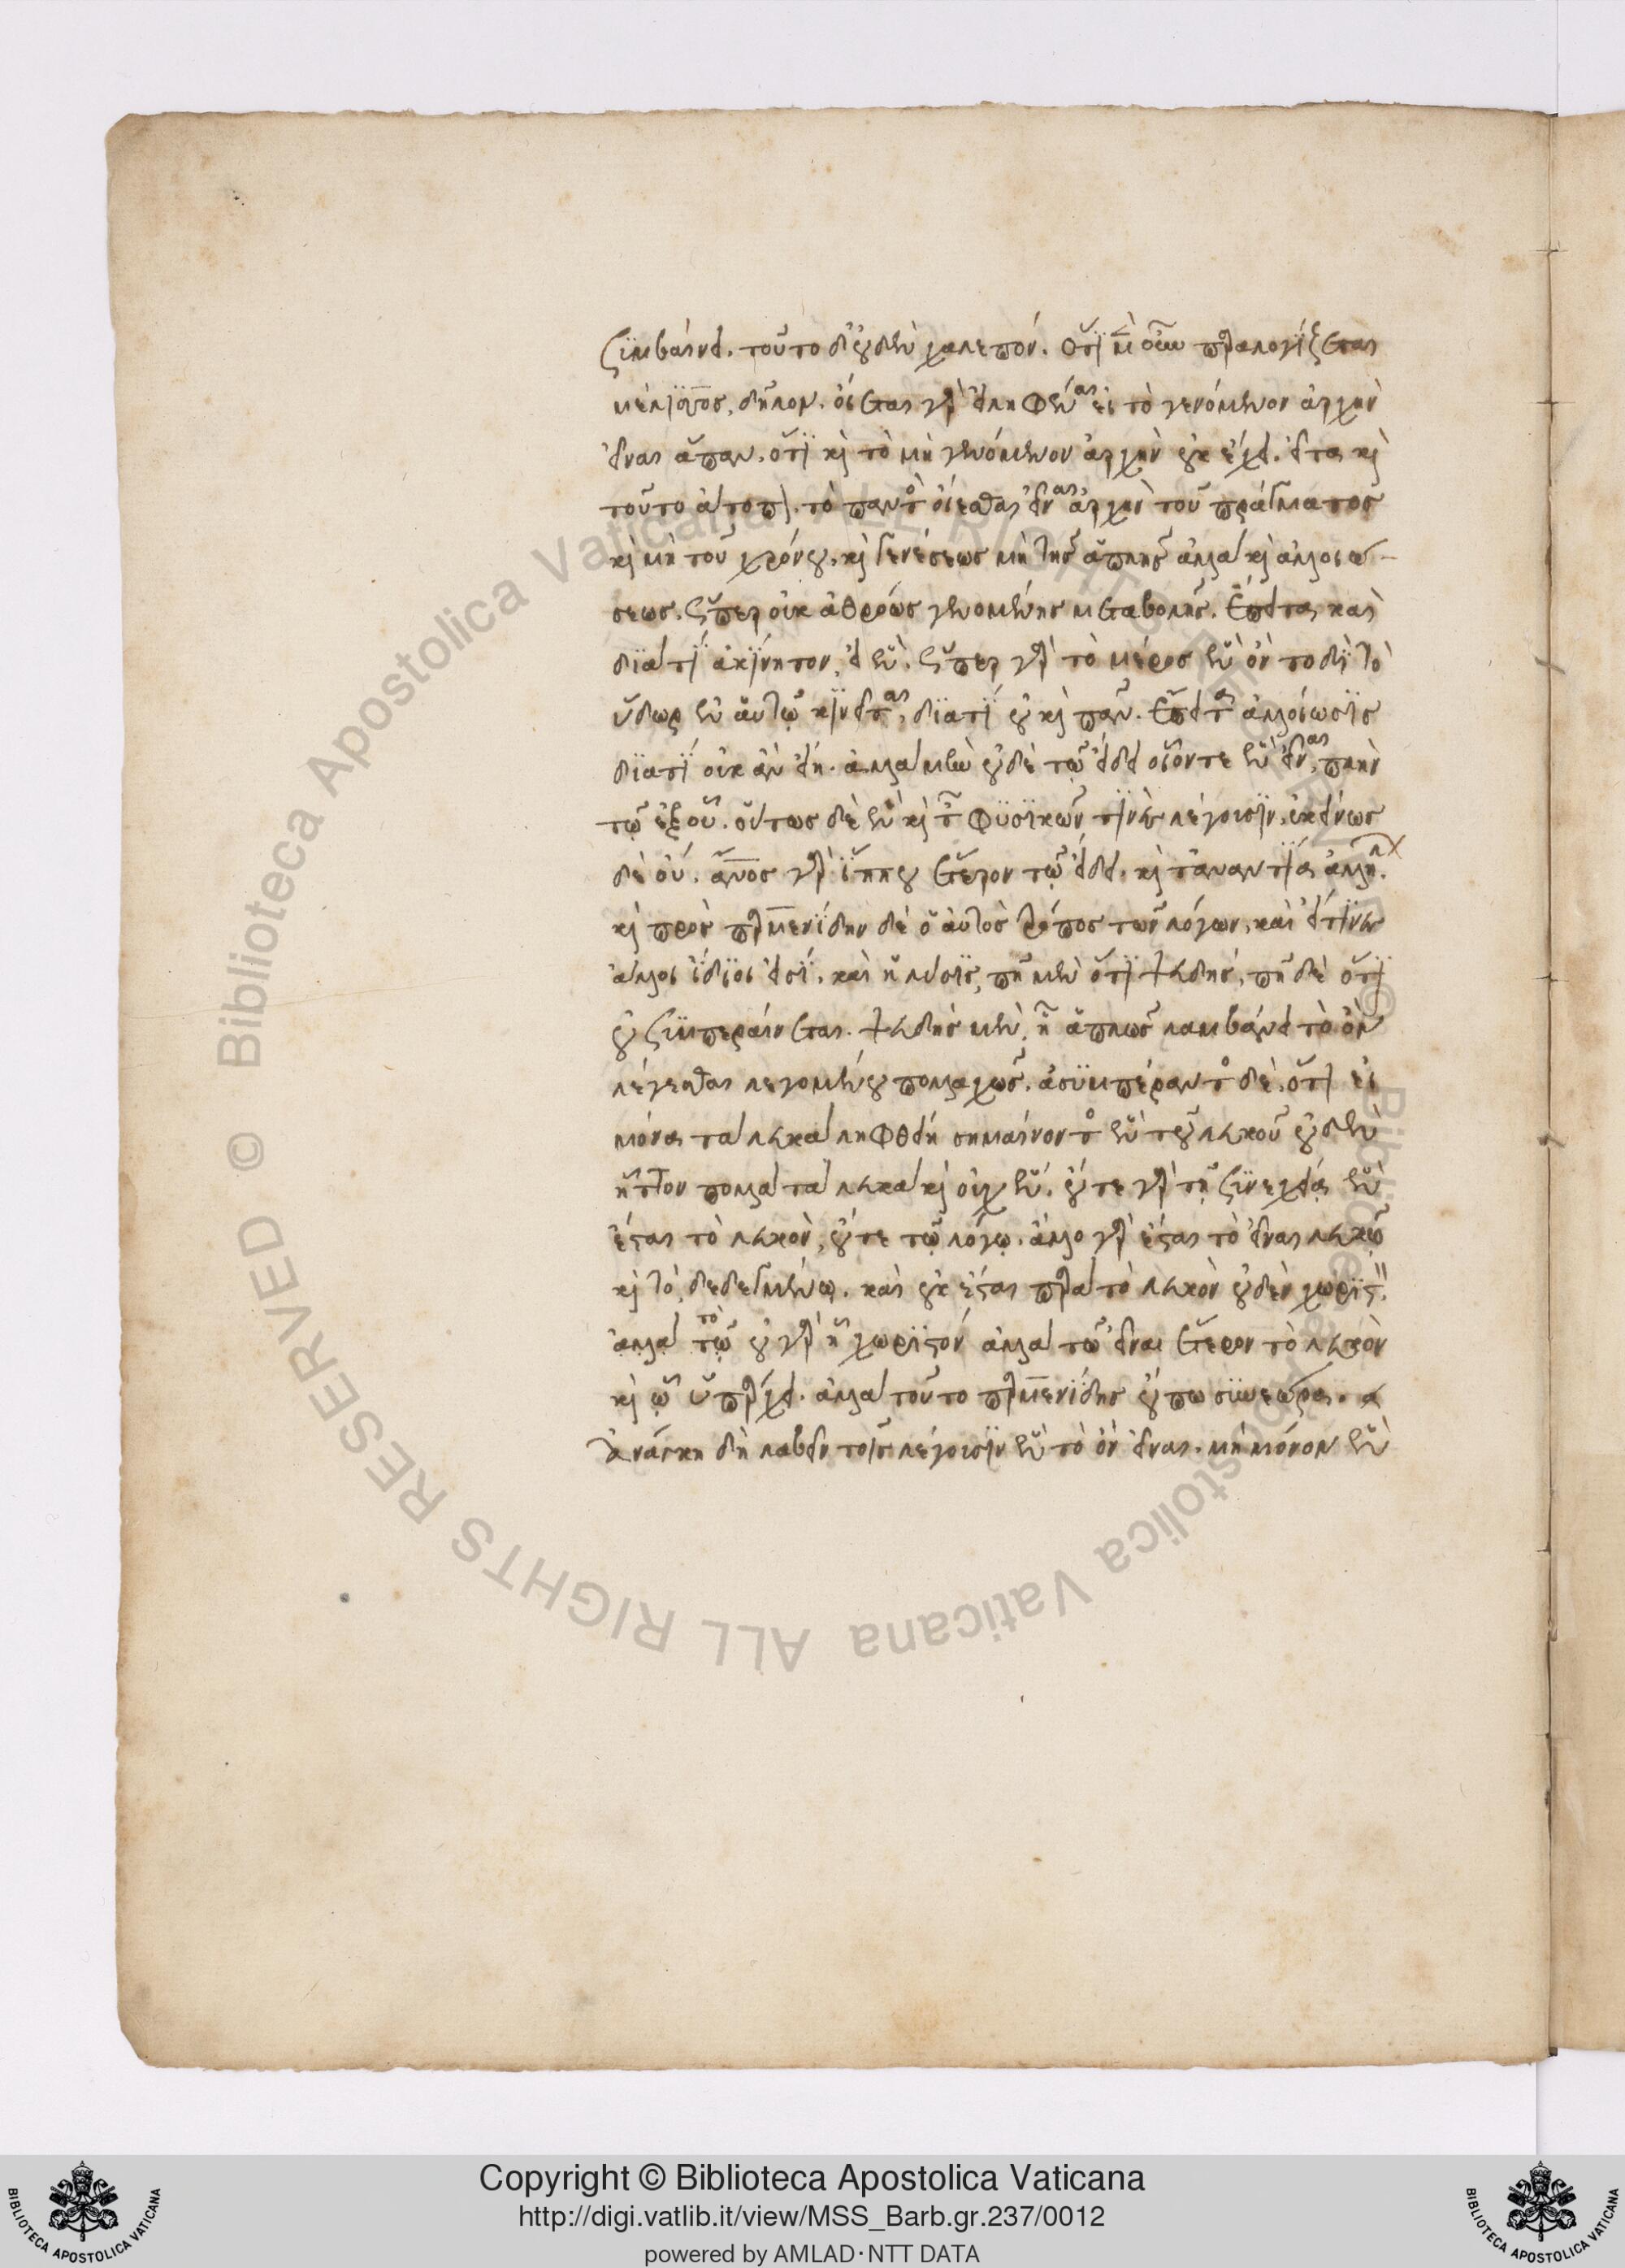 συμβαίνει. τοῦτο δ' οὐδὲν χαλεπόν. ὅτι μὲν οὖν παραλογίζεται
μέλισσος, δῆλον. οἴεται γὰρ εἰληφέναι εἰ τὸ γενόμενον ἀρχὴν
εἶναι ἅπαν, ὅτι καὶ τὸ μὴ γενόμενον ἀρχὴν οὐκ ἔχει. εἶτα καὶ
τοῦτο ἄτοπον. τὸ παντὸς οἴεσθαι εἶναι ἀρχὴν τοῦ πράγματος
καὶ μὴ τοῦ χρόνου, καὶ γενέσεως μὴ τῆς ἁπλῆς ἀλλὰ καὶ ἀλλοιώ-
σεως. ὥσπερ οὐκ ἀθρόως γενομένης μεταβολῆς. ἔπειτα καὶ
διατί ἀκίνητον, εἰ ἕν. ὥσπερ γὰρ τὸ μέρος ἓν ὂν τοδὶ τὸ
ὕδωρ ἐν ἑαυτῷ κινεῖται, διατί οὐ καὶ πᾶν. ἔπειτα ἀλλοίωσις
διατί οὐκ ἂν εἴη. ἀλλὰ μὴν οὐδὲ τῷ εἴδει οἷόν τε ἓν εἶναι, πλὴν
τῷ ἐξ οὗ. οὕτως δὲ ἓν καὶ τῶν φυσικῶν τινὲς λέγουσιν, ἐκείνως
δὲ οὔ. ἄνος γὰρ ἵππου ἕτερον τῷ εἴδει. καὶ τἀναντία ἀλλήλ.
καὶ πρὸς παρμενίδην δὲ ὁ αὐτὸς τρόπος τῶν λόγων, καὶ εἴ τινες
ἄλλοι ἴδιοι εἰσί. καὶ ἡ λύσις, πῇ μὲν ὅτι ψευδής, πῇ δὲ ὅτι
οὐ συμπεραίνεται. ψευδὴς μὲν, ᾗ ἁπλῶς λαμβάνει τὸ ὂν
λέγεσθαι λεγομένου πολλαχῶς. ἀσυμπέραντος δὲ, ὅτι εἰ
μόνα τὰ λευκὰ ληφθείη σημαίνοντος ἓν τοῦ λευκοῦ οὐδὲν
ἧττον πολλὰ τὰ λευκὰ καὶ οὐχ ἕν. οὔτε γὰρ τῇ συνεχείᾳ ἓν
ἔσται τὸ λευκὸν, οὔτε τῷ λόγῳ. ἄλλο γὰρ ἔσται τὸ εἶναι λευκῷ
καὶ τῷ δεδεγμένῳ. καὶ οὐκ ἔσται παρὰ τὸ λευκὸν οὐδὲν χωριστ.
ἀλλὰ τῷ τὸ οὐ γὰρ ᾗ χωριστόν ἀλλὰ τῷ εἶναι ἕτερον τὸ λευκὸν
καὶ ᾧ ὑπάρχει. ἀλλὰ τοῦτο παρμενίδης οὔπω συνεώρα.
ἀνάγκη δὴ λαβεῖν τοῖς λέγουσιν ἓν τὸ ὂν εἶναι. μὴ μόνον ἓν